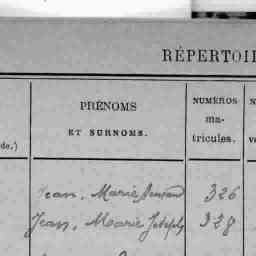 RÉPERTOI
PRÉNOMS
ET SURNOMS.
NUMÉROS
ma-
tricules.
de.)
Jean, Marie 326
Jean, Marie Joseph 328